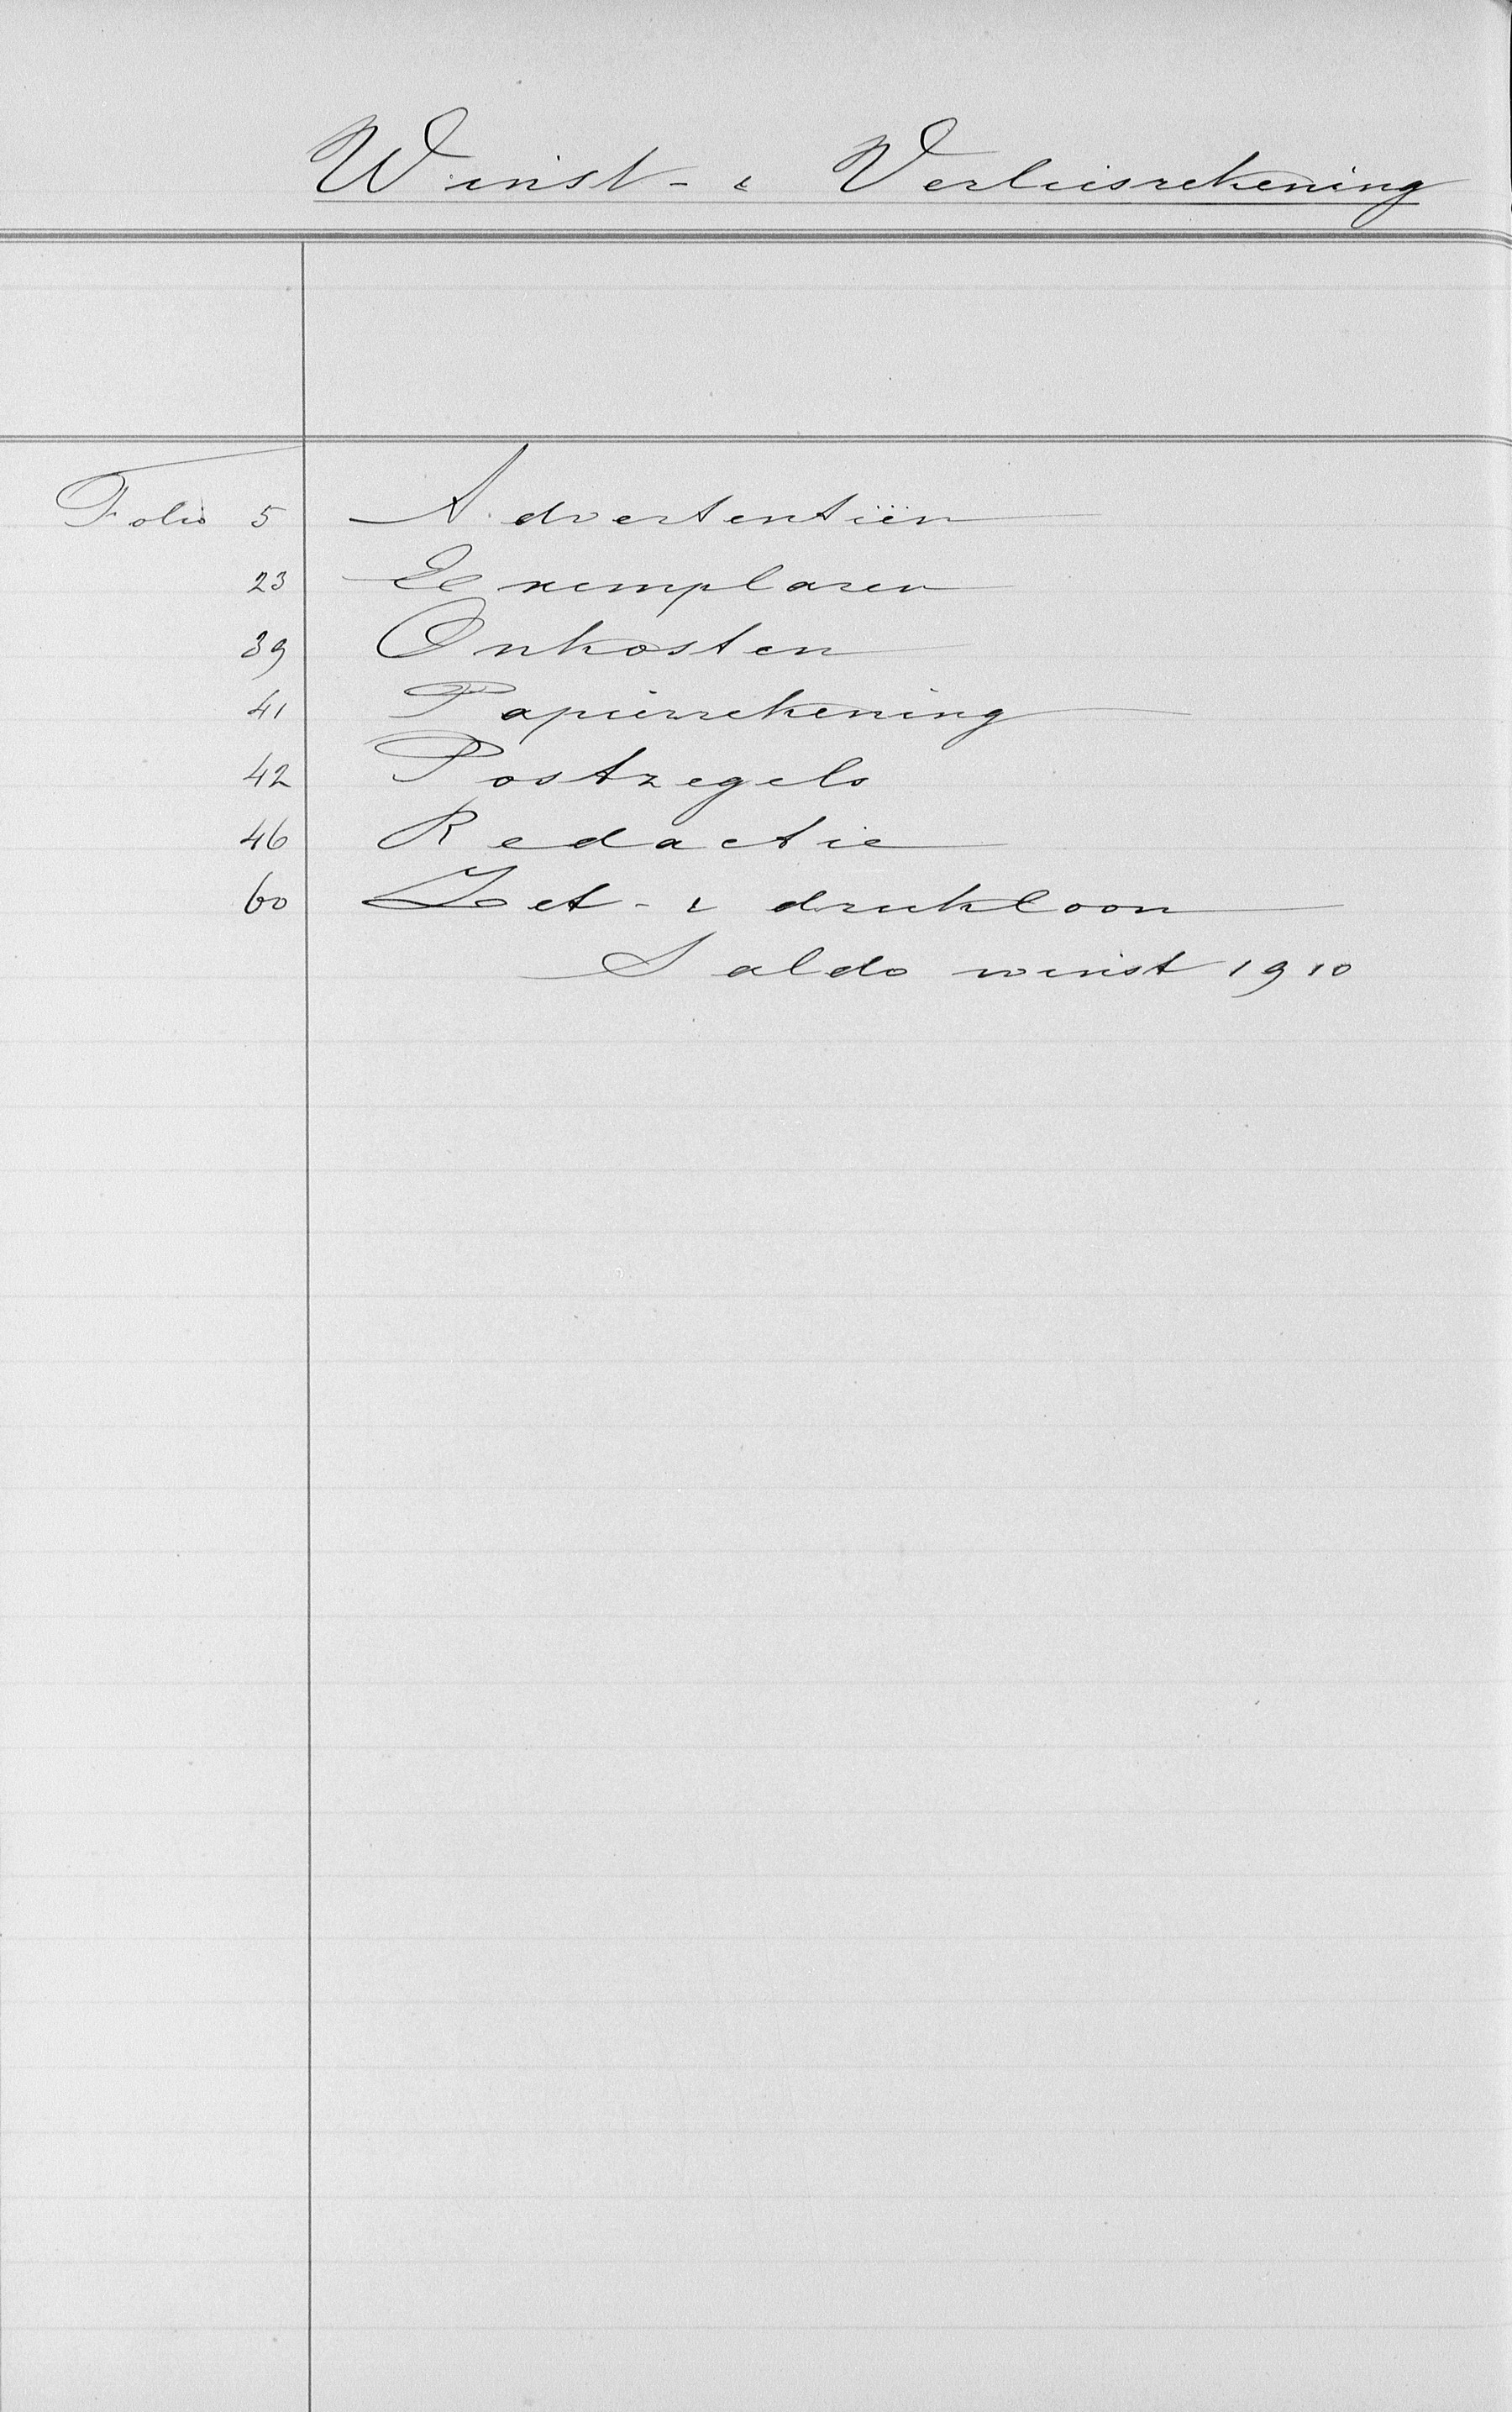 Winst- & Verliesrekening
Folio 5 Advertentiën
23 Exemplaren
39 Onkosten
41 Papierrekening
42 Postzegels
46 Redactie
60 Zet- & drukloon
Saldo winst 1910